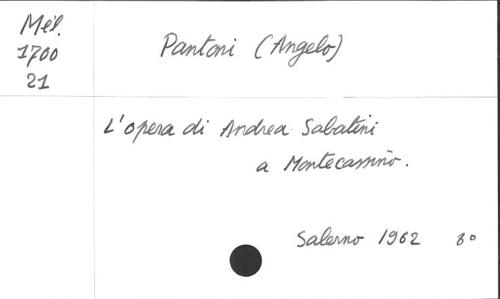 Mél.
1700
21
Pantoni (Angelo)
L'opera di Andrea Sabatini
a Montecassino.
Salerno 1962 8°